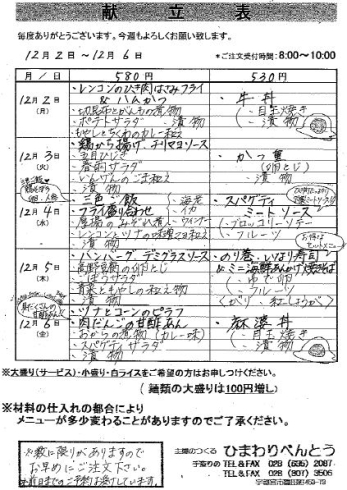 献立表
毎度ありがとうございます。今週もよろしくお願い致します。
12月2日～12月6日
*ご注文受付時間:8:00～10:00
月／日
580円
530円
12月2日
(月)
・レンコンのひき肉はさみフライ
&ハムかつ
・切昆布とがんもの煮物
・ポテトサラダ ・漬物
・もやしとちくわのカレー和え
・牛丼
・目玉焼き
・漬物
12月3日
(火)
・鶏から揚げ、チリマヨソース
・五目ひじき
・春雨サラダ
・いんげんのごま和え
・漬物
・かつ重
(卵とじ)
・漬物
12月4日
(水)
・三色ご飯
・フライ盛り合わせ
・漬物
・スパゲティ
ミートソース
・ブロッコリーソテー
・フルーツ
12月5日
(木)
・ハンバーグ、デミグラスソース
・高野豆腐の卵とじ
・ごぼうサラダ
・青菜ともやしの和え物
・漬物
・のり巻、いなり寿司
&ミニ海鮮あんかけ焼そば
・ゆで卵
・フルーツ
(がり・紅しょうが)
12月6日
(金)
・ツナとコーンのピラフ
・肉だんごの甘酢あん
・おからの煮物(カレー味)
・スパゲティサラダ
・漬物
・麻婆丼
・目玉焼き
・漬物
※大盛り(サービス)・小盛り・白ライスをご希望の方はお申しつけください。
(麺類の大盛りは100円増し)
※材料の仕入れの都合により
メニューが多少変わることがありますのでご了承ください。
※数に限りがありますので
お早めにご注文下さい。
前日までのご予約お待しています。
主婦のつくる ひまわりべんとう
手造りの TEL&FAX 028 (635) 2087
TEL&FAX 028 (907) 3506